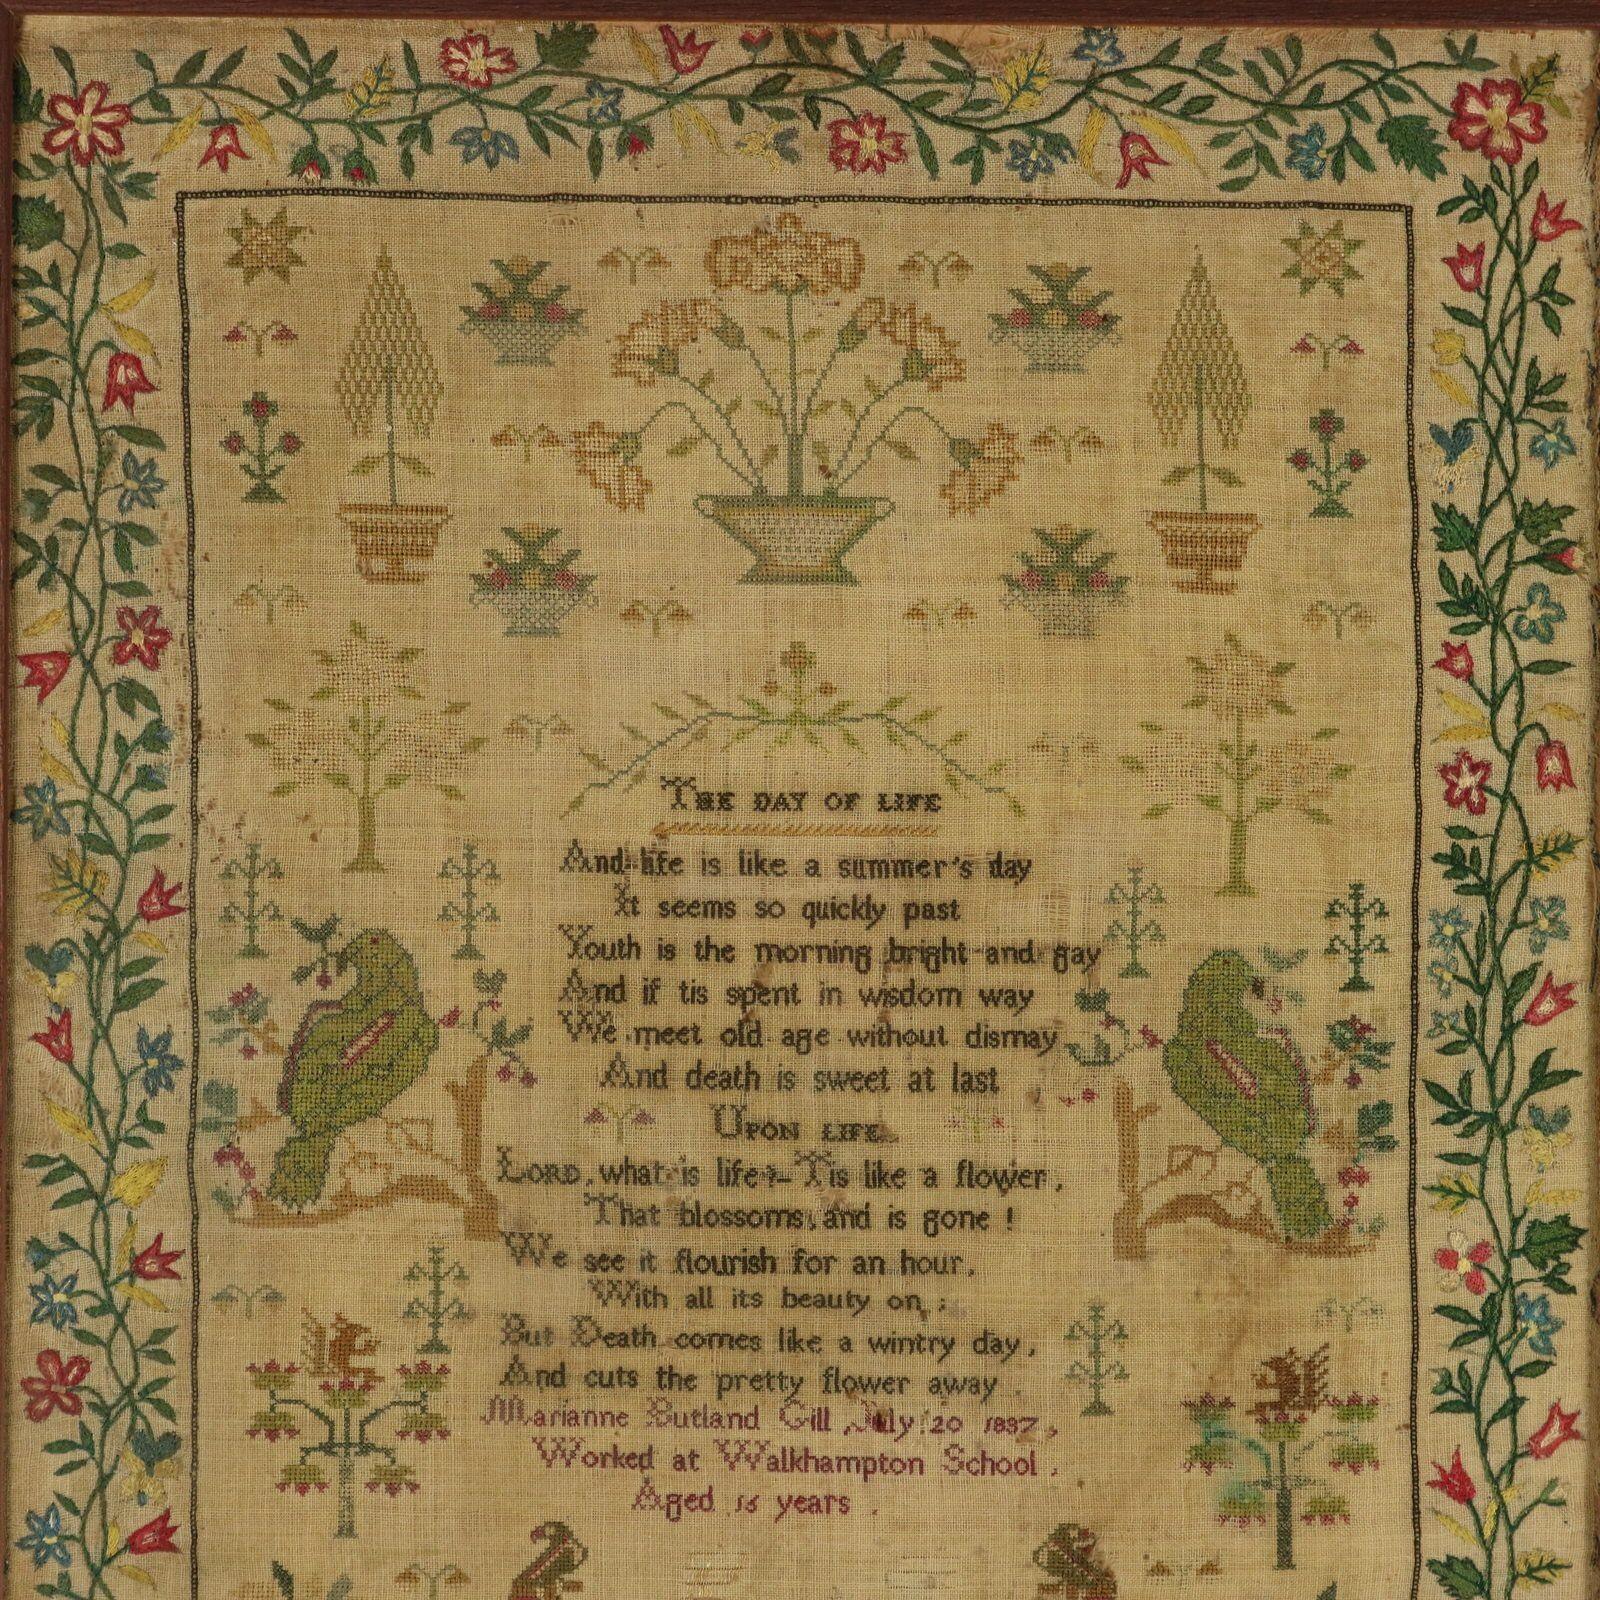 THE DAY OF LIFE
And life is like a summer's day
It seems so quickly past
Youth is the morning bright and gay
And if tis spent in wisdom way
We meet old age without dismay
And death is sweet at last
UPON LIFE
LORD, what is life?– Tis like a flower,
That blossoms, and is gone!
We see it flourish for an hour,
With all its beauty on;
But Death comes like a wintry day,
And cuts the pretty flower away.
Marianne Butland Gill, July 20 1837,
Worked at Walkhampton School,
Aged 15 years.